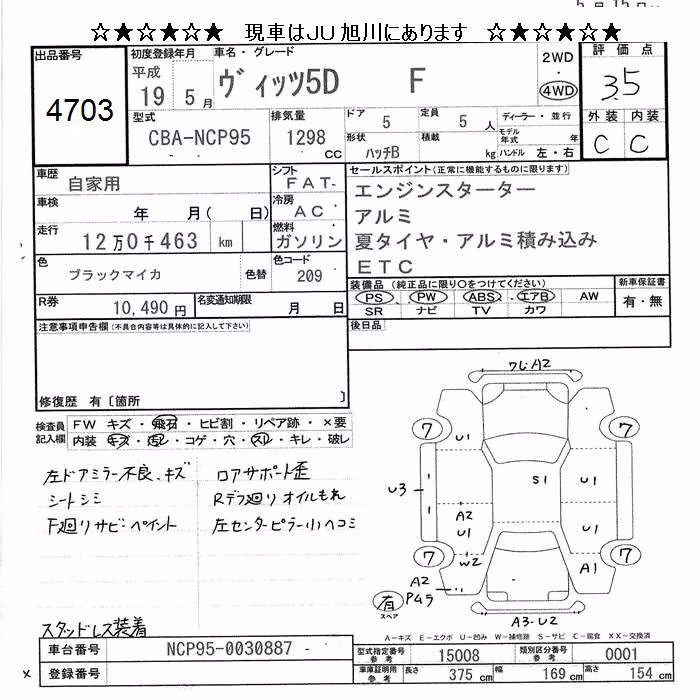 ☆★☆★☆★ 現車はJU旭川にあります ☆★☆★☆★
出品番号
4703
初度登録年月
平成
19 5月
車名・グレード
ヴィッツ5D F
2WD
4WD
評価点
3.5
外装 内装
C C
型式
CBA-NCP95
排気量
1298
CC
ドア
5
定員
5人
形状
ハッチB
積載
kg
ディーラー・並行
モデル年式 年
ハンドル 左・右
車歴
自家用
シフト
FAT-
車検
年 月( 日)
冷房
AC
走行
12万0千463 km
燃料
ガソリン
色
ブラックマイカ
色替
色コード
209
R券
10,490円
名変通知期限
月 日
セールスポイント(正常に機能するものに限ります)
エンジンスターター
アルミ
夏タイヤ・アルミ積み込み
ETC
装備品(純正品に限り○をつけてください)
PS PW ABS エアB AW
SR ナビ TV カワ
新車保証書
有・無
後日品
注意事項申告欄(不具合内容等は具体的に記入して下さい)
修復歴 有〔箇所 〕
検査員記入欄
FW キズ・飛石・ヒビ割・リペア跡・×要
内装 キズ・汚レ・コゲ・穴・スレ・キレ・破レ
左ドアミラー不良、キズ
シートシミ
F廻りサビペイント
ロアサポート歪
Rデフ廻りオイルもれ
左センターピラー小ヘコミ
スタッドレス装着
ワレA2
7
7
U1
U3
S1
U1
A2
U1
U1
7
W2
7
A1
A2
有
スペア
A3-U2
A-キズ E-エクボ U-凹み W-補修跡 S-サビ C-腐食 XX-交換済
車台番号
NCP95-0030887 -
登録番号
型式指定番号
参考
15008
類別区分番号
参考
0001
車庫証明用
参考
長さ
375 cm
幅
169 cm
高さ
154 cm
×